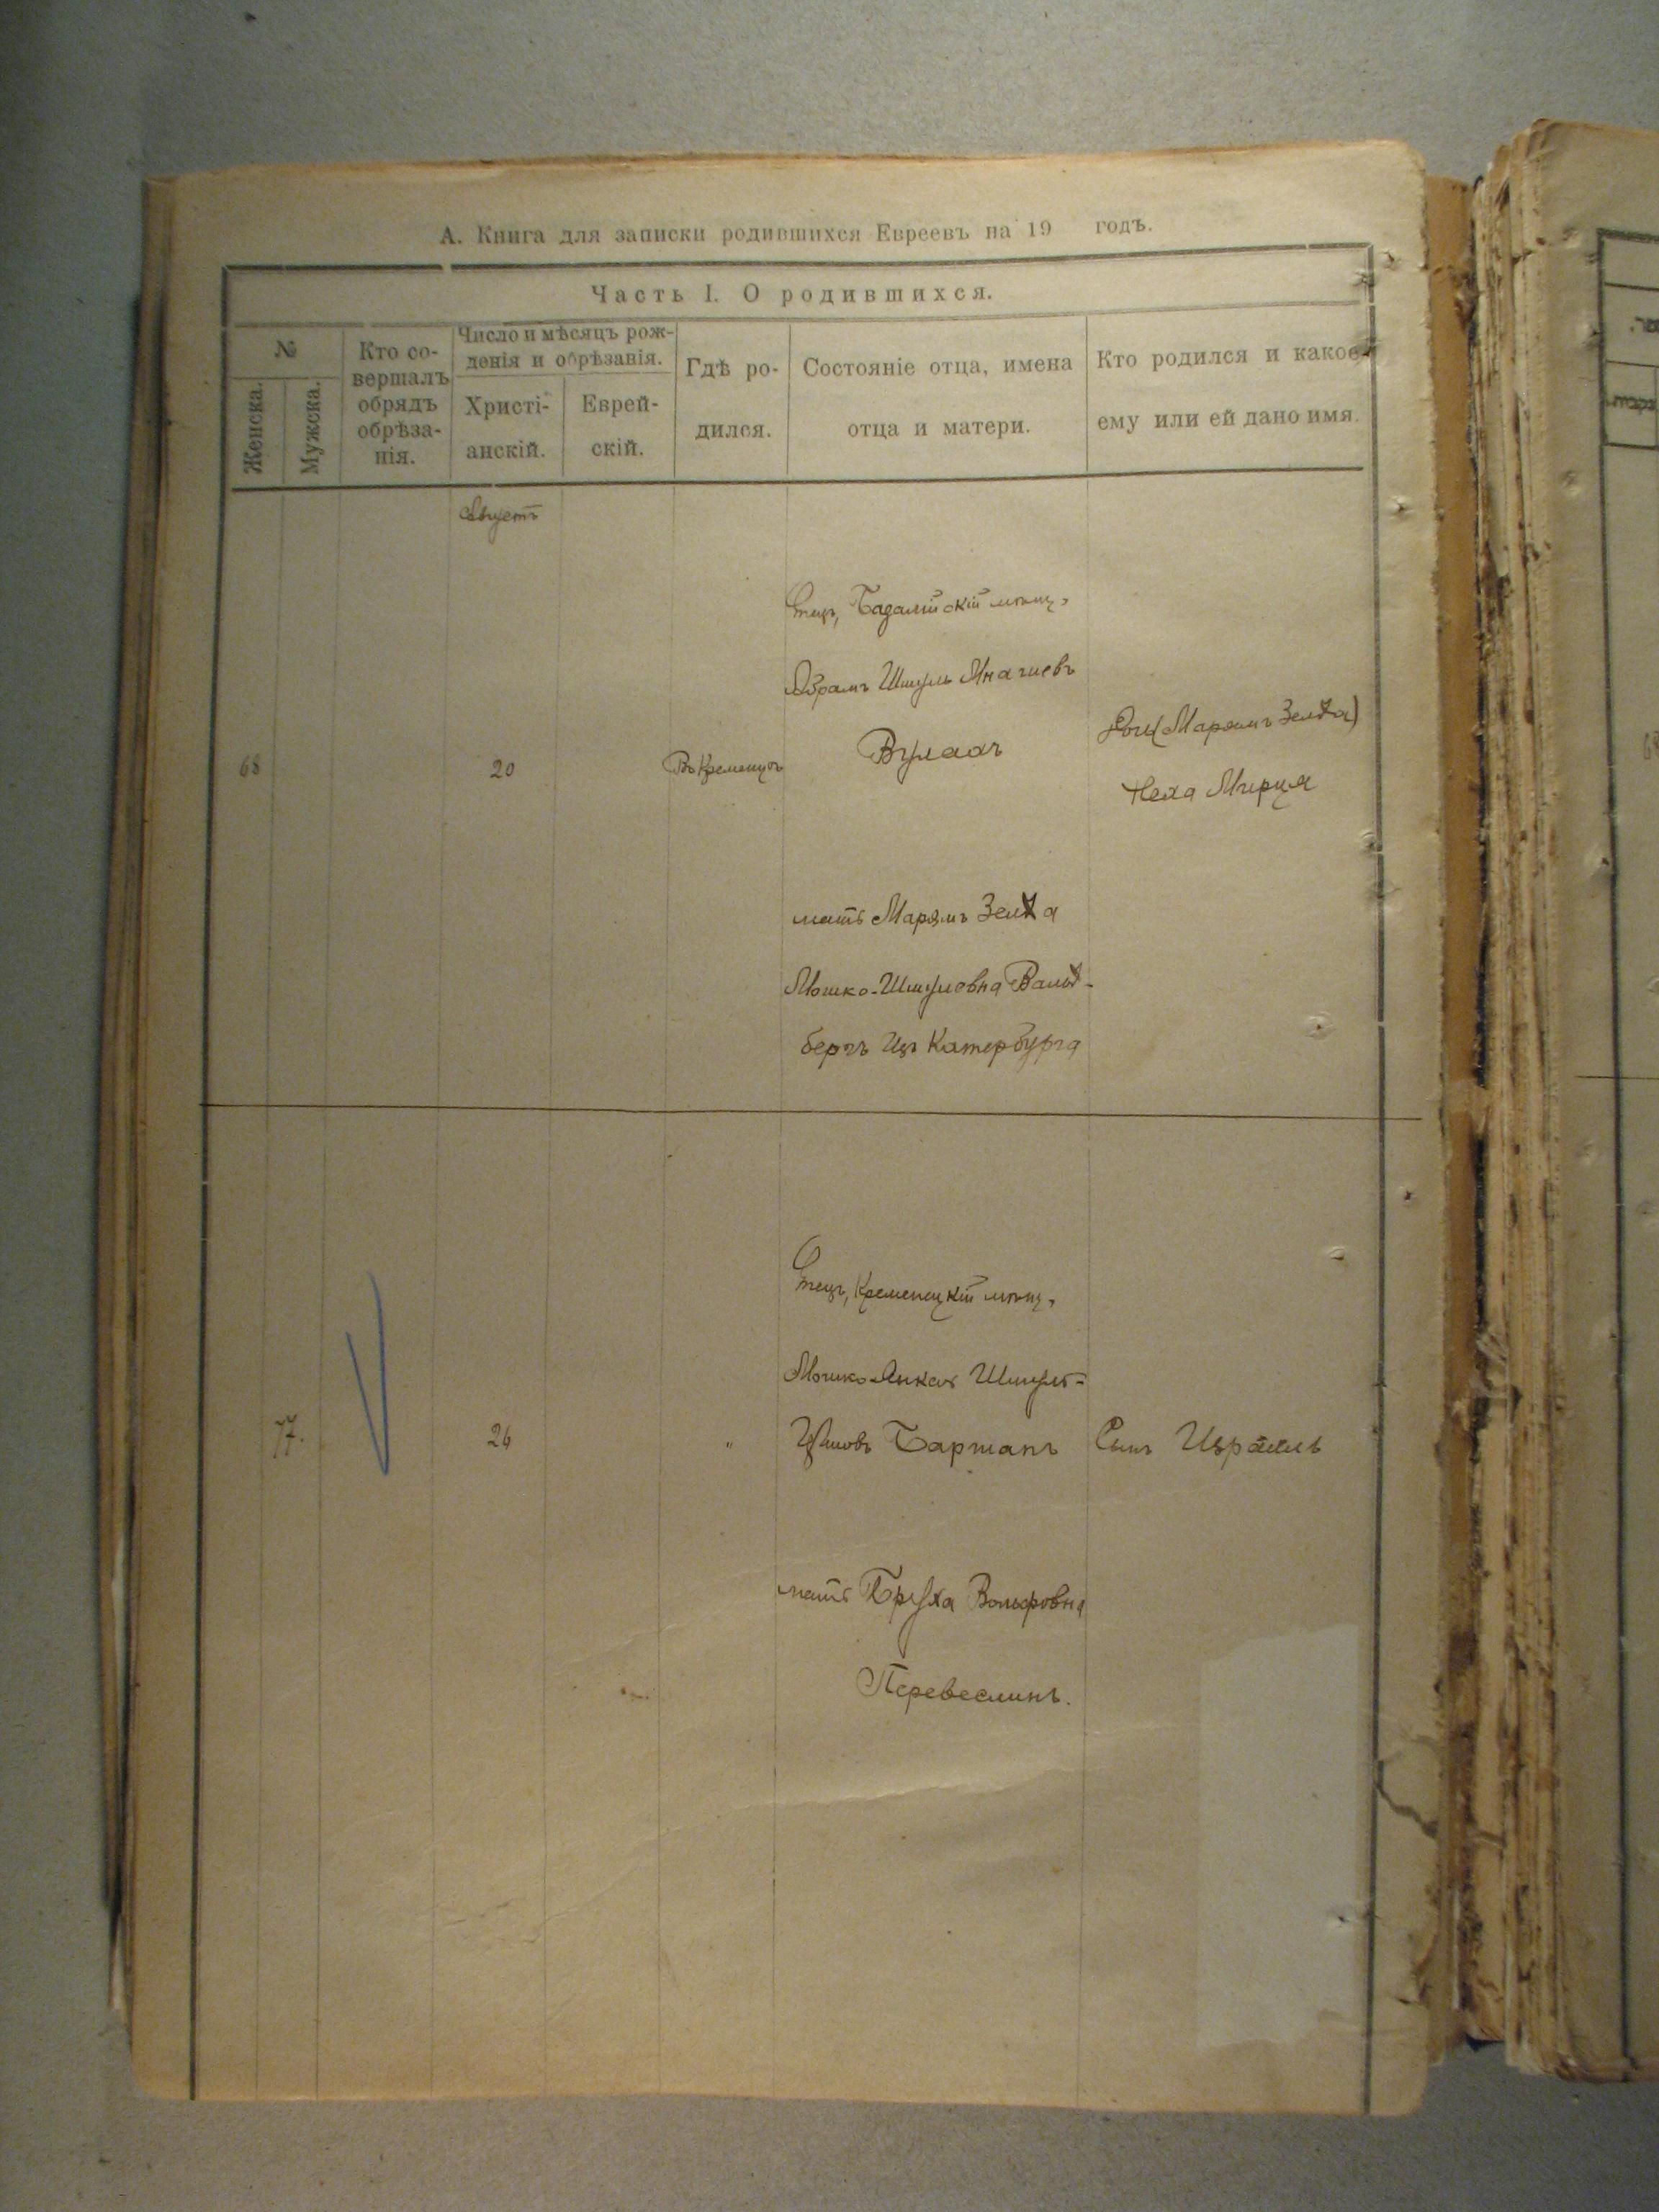 А. Книга для записки родившихся Евреевъ на 19 годъ.
Часть I. О родившихся.
№
Женска.
Мужска.
Кто со-
вершалъ
обрядъ
обрѣза-
нія.
Число и мѣсяцъ рож-
денія и обрѣзанія.
Христі-
анскій.
Еврей-
скій.
Гдѣ ро-
дился.
Состояніе отца, имена
отца и матери.
Кто родился и какое
ему или ей дано имя.
Августъ
68
20
Въ Кременцѣ
Отецъ, мѣщ.
Абрамъ Шмуль
Вулахъ
мать Марямъ Зелда
Мошко-Шмулевна Вальд-
бергъ Изъ Катербурга
Дочь (Марямъ Зелда)
Неха
77.
24
"
Отецъ, Кременецкій мѣщ.
Мошко-Янкель Шмуль-
Бартанъ
мать Бруха Вольфовна
Перевеслинъ.
Сынъ Израиль